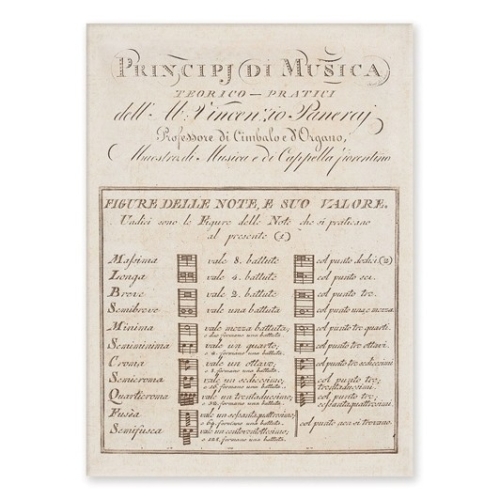 PRINCIPJ DI MUSICA
TEORICO-PRATICI
dell' Ab. Vincenzio Panerai
Professore di Cimbalo e d'Organo,
Maestro di Musica e di Cappella fiorentino
FIGURE DELLE NOTE, E SUO VALORE.
Undici sono le Figure delle Note che si praticano
al presente (1)
Massima vale 8. battute col punto dodici (2)
Longa vale 4. battute col punto sei.
Breve vale 2. battute col punto tre.
Semibreve vale una battuta col punto una e mezza
Minima vale mezza battuta; col punto tre quarti.
e 2. formano una battuta.
Semiminima vale un quarto; col punto tre ottavi.
e 4. formano una battuta.
Croma vale un ottavo; col punto tre sedicesimi
e 8. formano una battuta.
Semicroma vale un sedicesimo; col punto tre
e 16. formano una battuta.
Quarticroma vale un trentaduesimo; col punto tre
e 32. formano una battuta.
Fusea vale un sessantaquattresimo;
e 64. formano una battuta.
Semifusea col punto non si trovano.
e 128. formano una battuta.